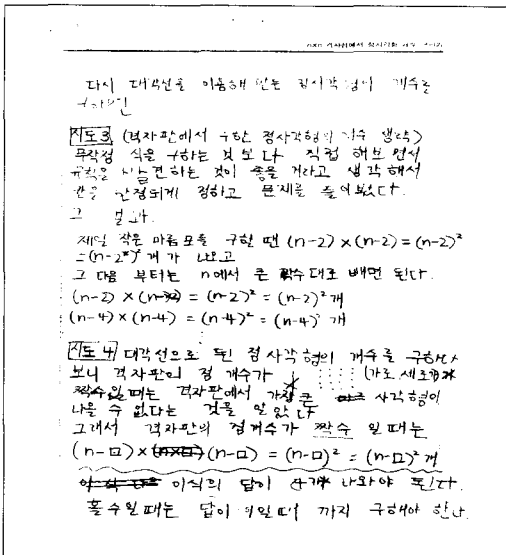 n×n 격자점에서 정사각형 개수 구하기
다시 대각선을 이용해 만든 정사각형의 개수를
구하면
시도3 (격자판에서 구한 정사각형의 개수 생략)
무작정 식을 구하는 것 보다 직접 해보면서
규칙을 발견하는 것이 좋을 거라고 생각해서
판을 한정되게 정하고 문제를 풀어보았다.
그 결과.
제일 작은 마름모를 구할 땐 (n-2) × (n-2) = (n-2)²
=(n-2)² 개가 나오고
그 다음 부터는 n에서 큰 짝수 대로 빼면 된다.
(n-2) × (n-2) = (n-2)² = (n-2)² 개
(n-4) × (n-4) = (n-4)² = (n-4)² 개
시도4 대각선으로 된 정사각형의 개수를 구하다
보니 격자판의 점 개수가 (가로, 세로
짝수일 때는 격자판에서 가장 큰 사각형이
나올 수 없다는 것을 알았다
그래서 격자판의 점개수가 짝수 일 때는
(n-□) × (n-□) = (n-□)² = (n-□)² 개
이식의 답이 4개 나와야 된다.
홀수일때는 답이 1일때 까지 구해야 한다.